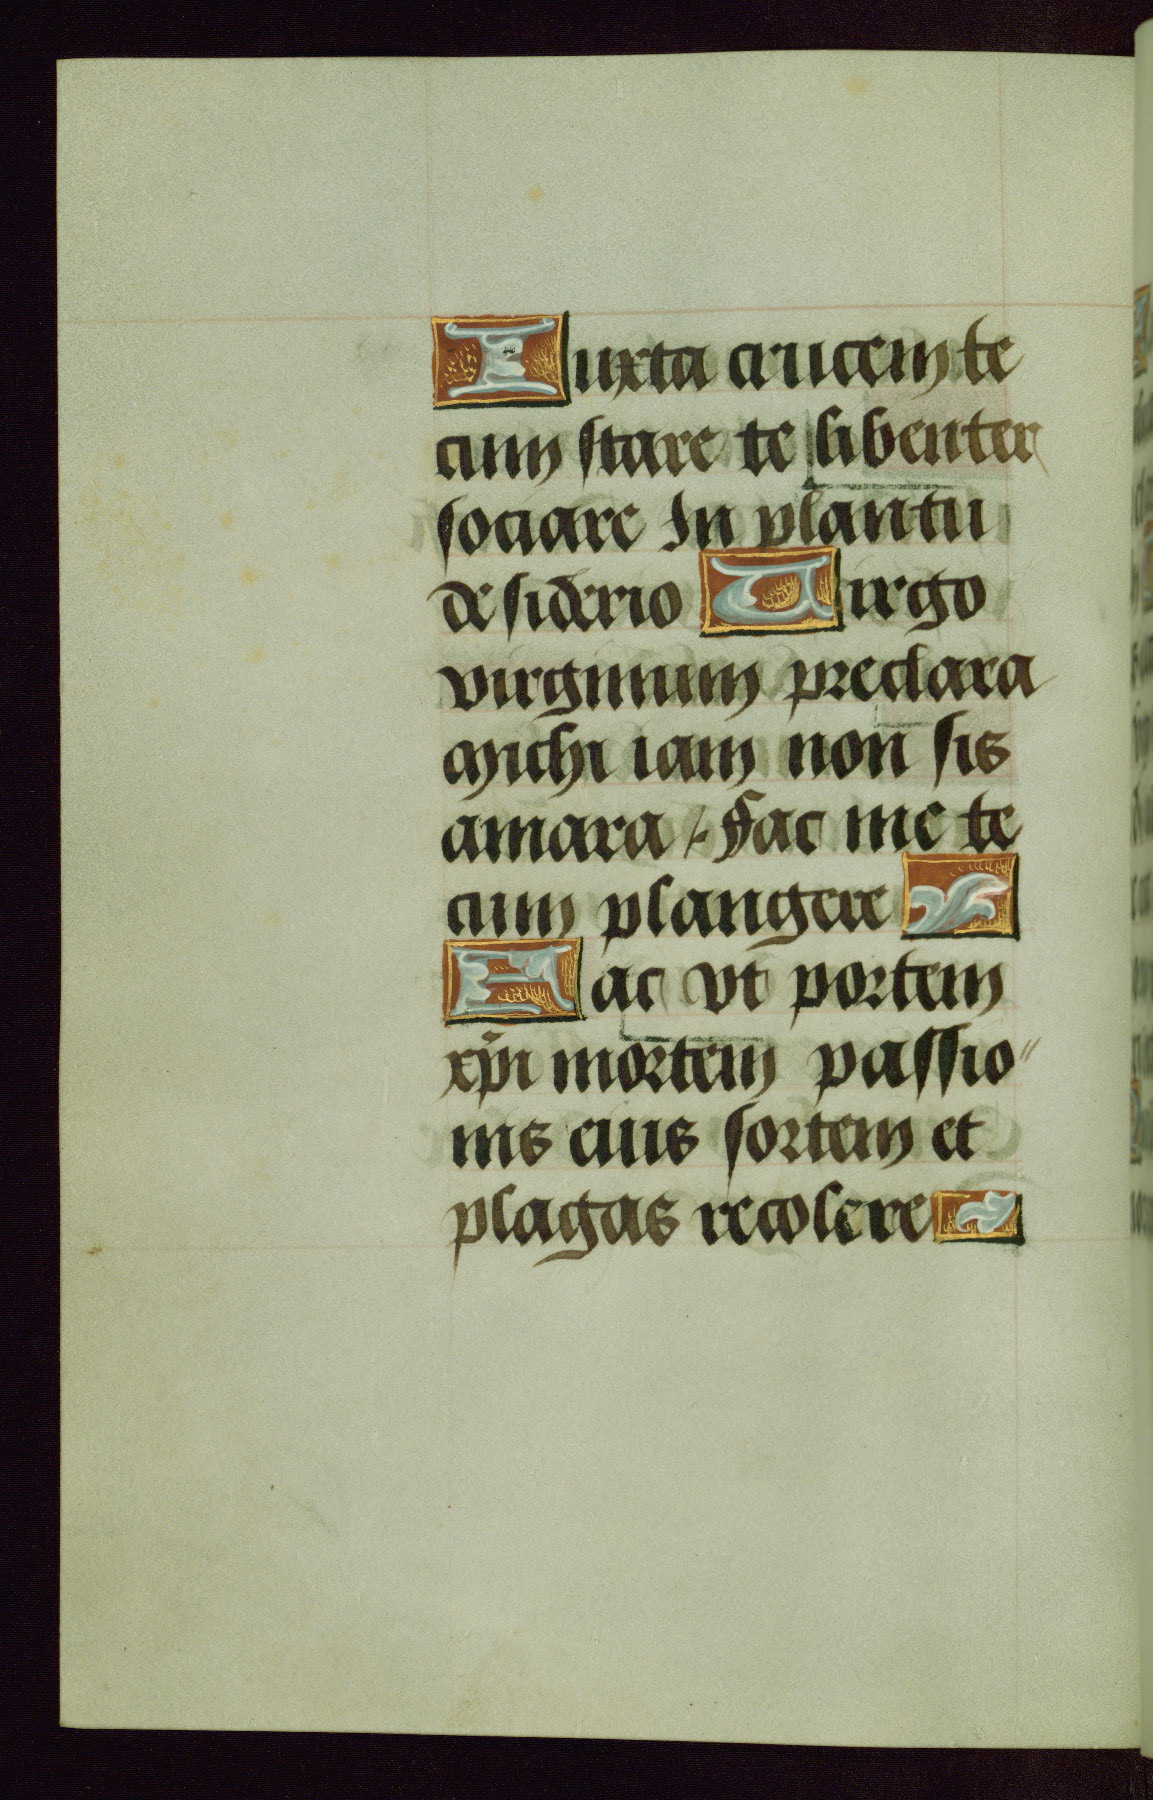 Iuxta crucem te
cum stare te libenter
sociare In plantu
desiderio Uirgo
virginum preclara
michi iam non sis
amara /. Fac me te
cum plangere
Fac vt portem
xp̄i mortem passio"
nis eius sortem et
plagas recolere